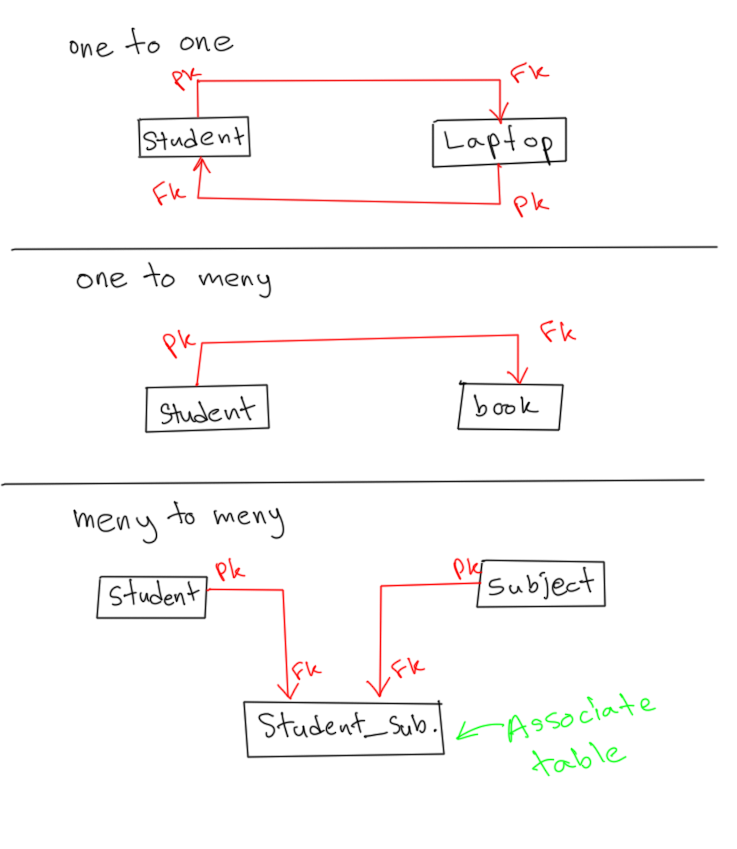 one to one
Pk
Fk
Student
Laptop
Fk
Pk
one to meny
Pk
Fk
Student
book
meny to meny
Pk
Pk
Student
Subject
Fk
Fk
Student_Sub.
Associate
table